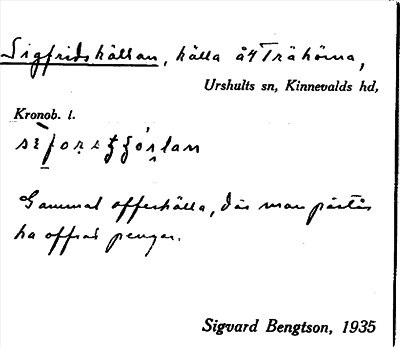 Sigfridskällan, källa å Trähörna,
Urshults sn, Kinnevalds hd,
Kronob. l.
Gammal offerkälla, där man påstås
ha offrat pengar.
Sigvard Bengtson, 1935